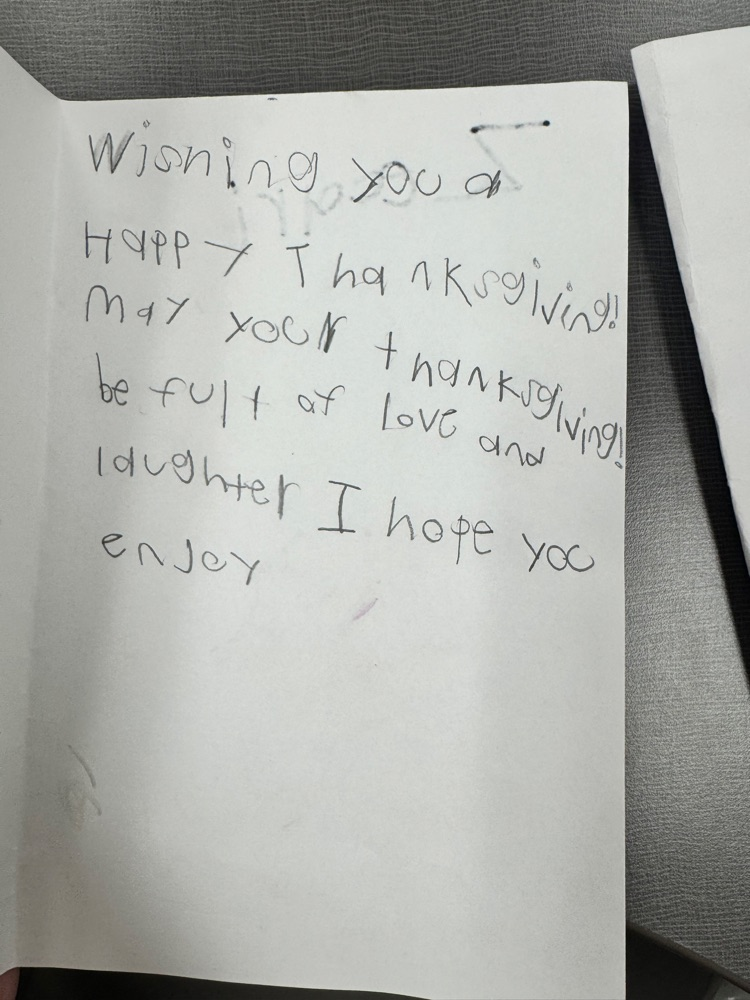 Wisning you a
Happy Thanksgiving!
May your thanksgiving!
be full of Love and
laughter I hope you
enjoy